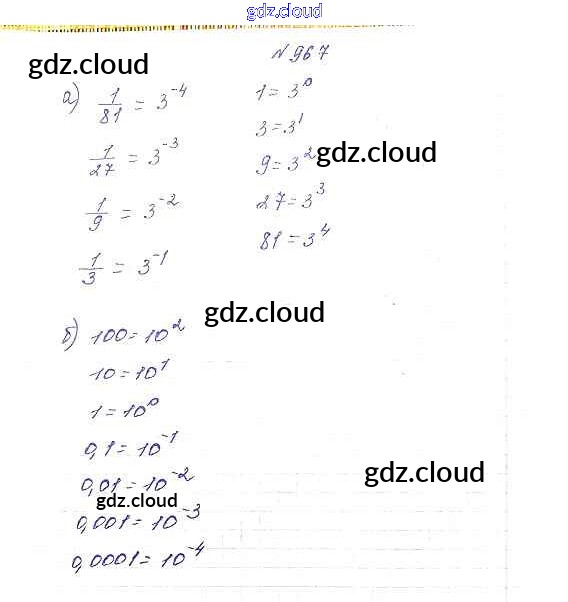 gdz.cloud
№ 967
gdz.cloud
а) 1/81 = 3^-4
1/27 = 3^-3
1/9 = 3^-2
1/3 = 3^-1
1 = 3^0
3 = 3^1
9 = 3^2
gdz.cloud
27 = 3^3
81 = 3^4
gdz.cloud
б) 100 = 10^2
10 = 10^1
1 = 10^0
0,1 = 10^-1
gdz.cloud
0,01 = 10^-2
gdz.cloud
0,001 = 10^-3
0,0001 = 10^-4